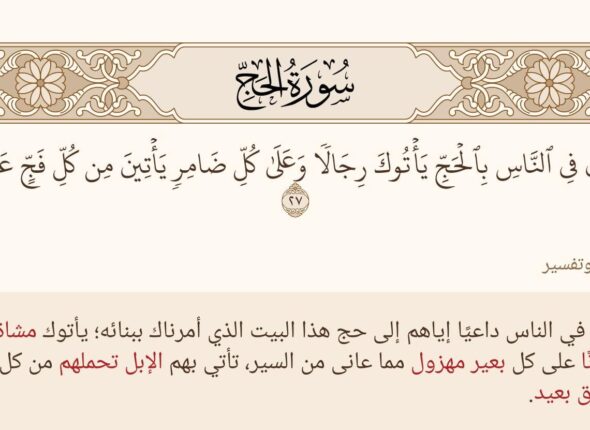 سُورَةُ الحَجِّ
فِي ٱلنَّاسِ بِٱلۡحَجِّ يَأۡتُوكَ رِجَالٗا وَعَلَىٰ كُلِّ ضَامِرٖ يَأۡتِينَ مِن كُلِّ فَجٍّ
٢٧
وتفسير
في الناس داعيًا إياهم إلى حج هذا البيت الذي أمرناك ببنائه؛ يأتوك
على كل بعير مهزول مما عانى من السير، تأتي بهم الإبل تحملهم من كل
بعيد.